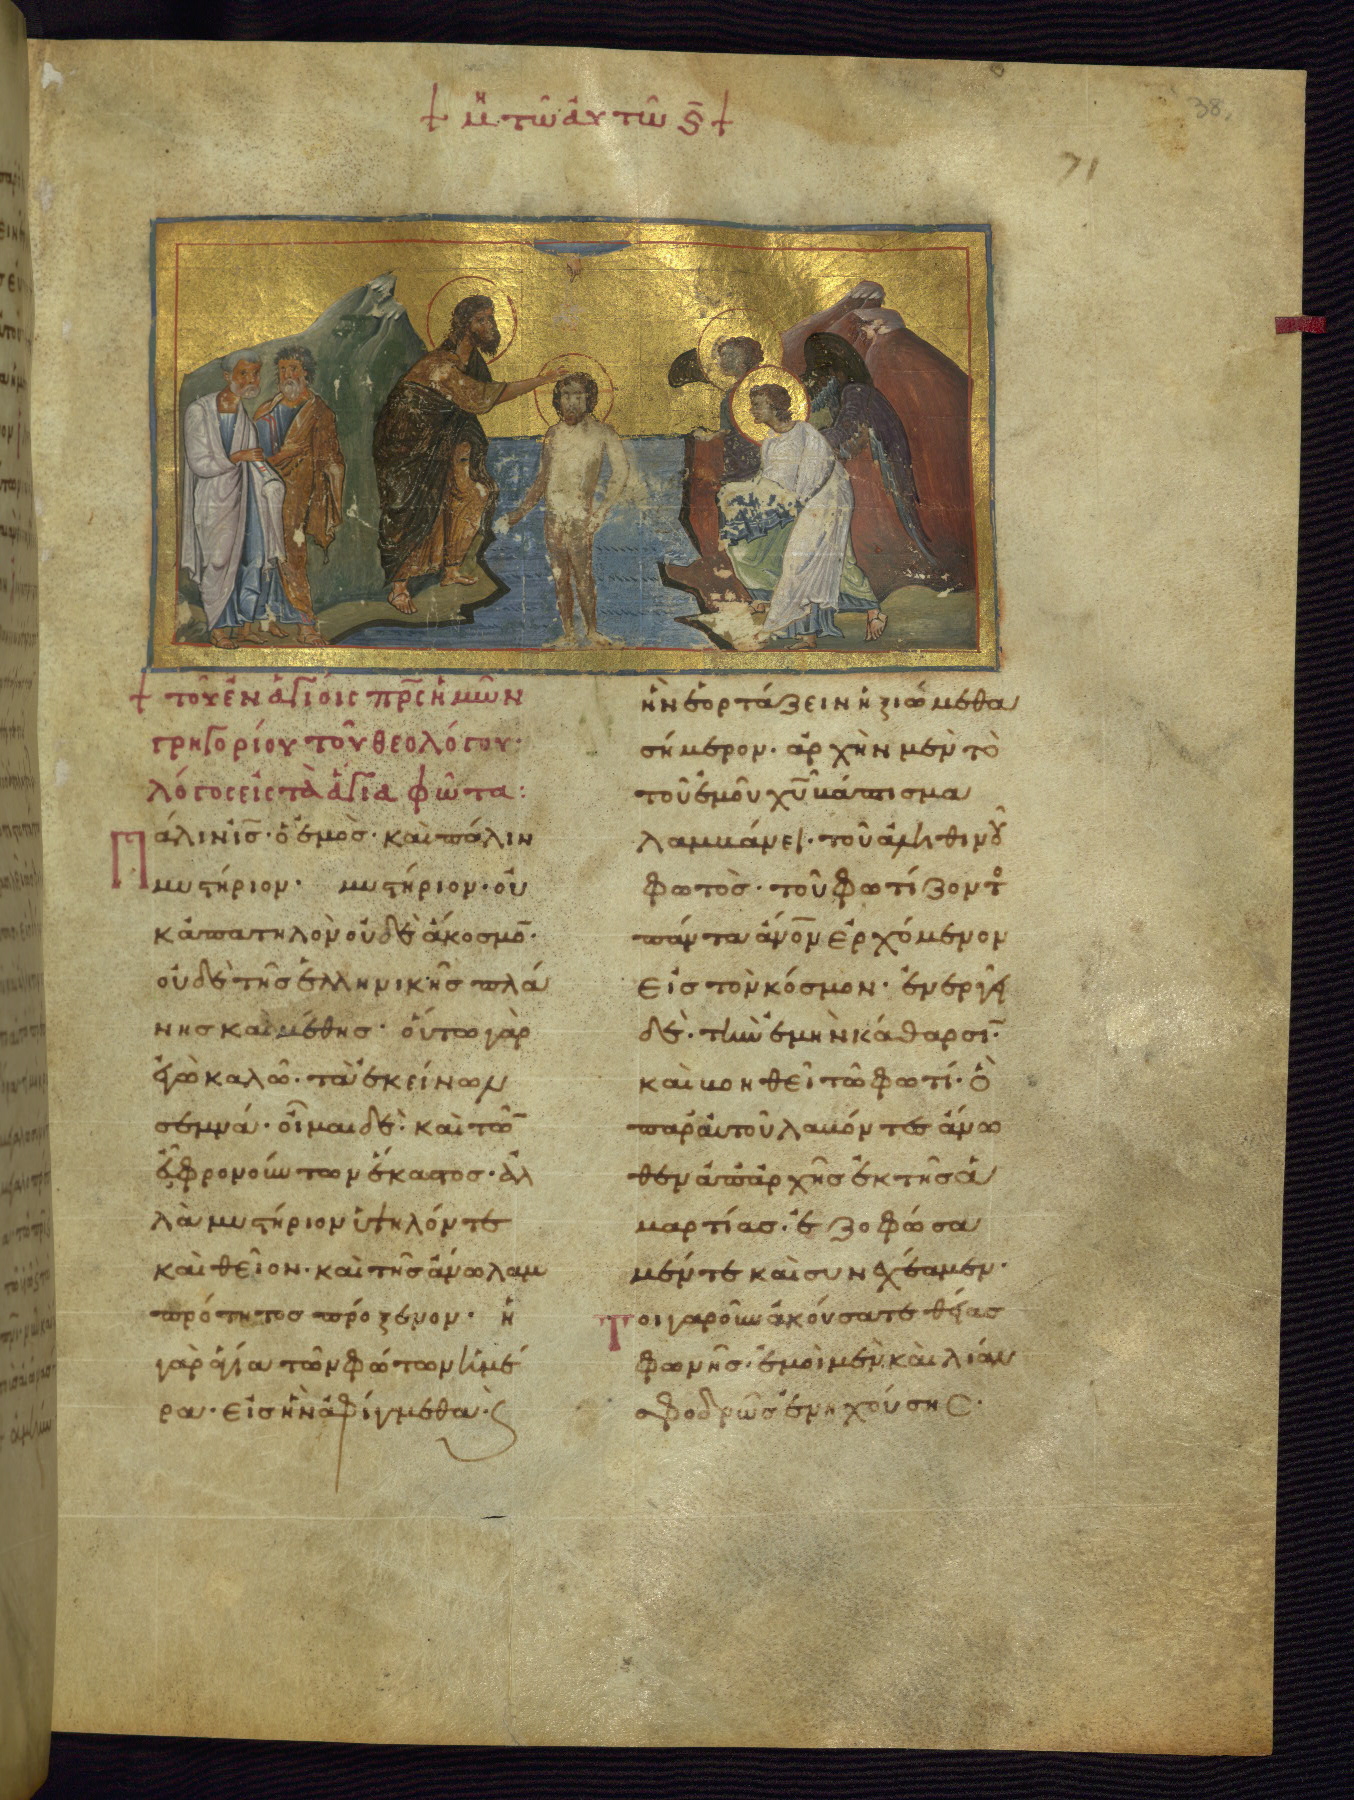 μη τῶ ἀυτῶ ϛ
38.
71
τοῦ ἐν ἁγίοις πρς ἡμῶν
γρηγορίου τοῦ θεολόγου·
λόγος εἰς τὰ ἅγια φῶτα:
Πάλιν ις ὁ ἐμὸσ· και πάλιν
μυστήριον· μυστήριον· οὐ
κ ἀπατηλὸν οὐδὲ ἄκοσμο·
οὐδὲ τῆσ ἑλληνικῆσ πλά
νησ και μέθησ· οὕτω γὰρ
ἐγὼ καλῶ· τὰ ἐκείνων
σεμνά· οἶμαι δὲ· και τῶ
εὖ φρονούντων ἕκαστος· ἀλ
λὰ μυστήριον ὑψηλόν τε
και θεῖον· και τῆσ ἄνω λαμ
πρότητοσ πρόξενον· ἡ
γὰρ ἁγία τῶν φώτων ἡμέ
ρα· εἰσ ἣν ἀφίγμεθα· ϛ
ἣν ἑορτάζειν ἠξιώμεθα
σήμερον· ἀρχὴν μὲν τὸ
τοῦ ἐμοῦ χυ βάπτισμα
λαμβάνει· τοῦ ἀληθινοῦ
φωτὸσ· τοῦ φωτίζοντο
πάντα ἄνον ἐρχόμενον
εἰσ τὸν κόσμον· ἐνεργεῖ
δὲ· τὴν ἐμὴν κάθαρσι·
και βοηθεῖ τῶ φωτί· ὃ
παρ αὐτοῦ λαβόντεσ ἄνω
θεν ἀπ ἀρχῆσ ἐκ τῆσ ἁ
μαρτίασ· ἐζοφώσα
μέν τε και συνεχέαμεν·
Τοιγαροῦν ἀκούσατε θείασ
φωνῆσ· ἐμοὶ μὲν και λίαν
σφοδρῶσ ἐνηχούσησ·